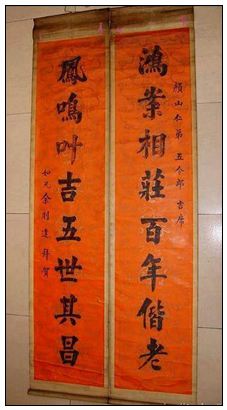 頌山仁弟 五令郎 吉席
鴻案相莊百年偕老
鳳鳴叶吉五世其昌
如兄余則達拜賀